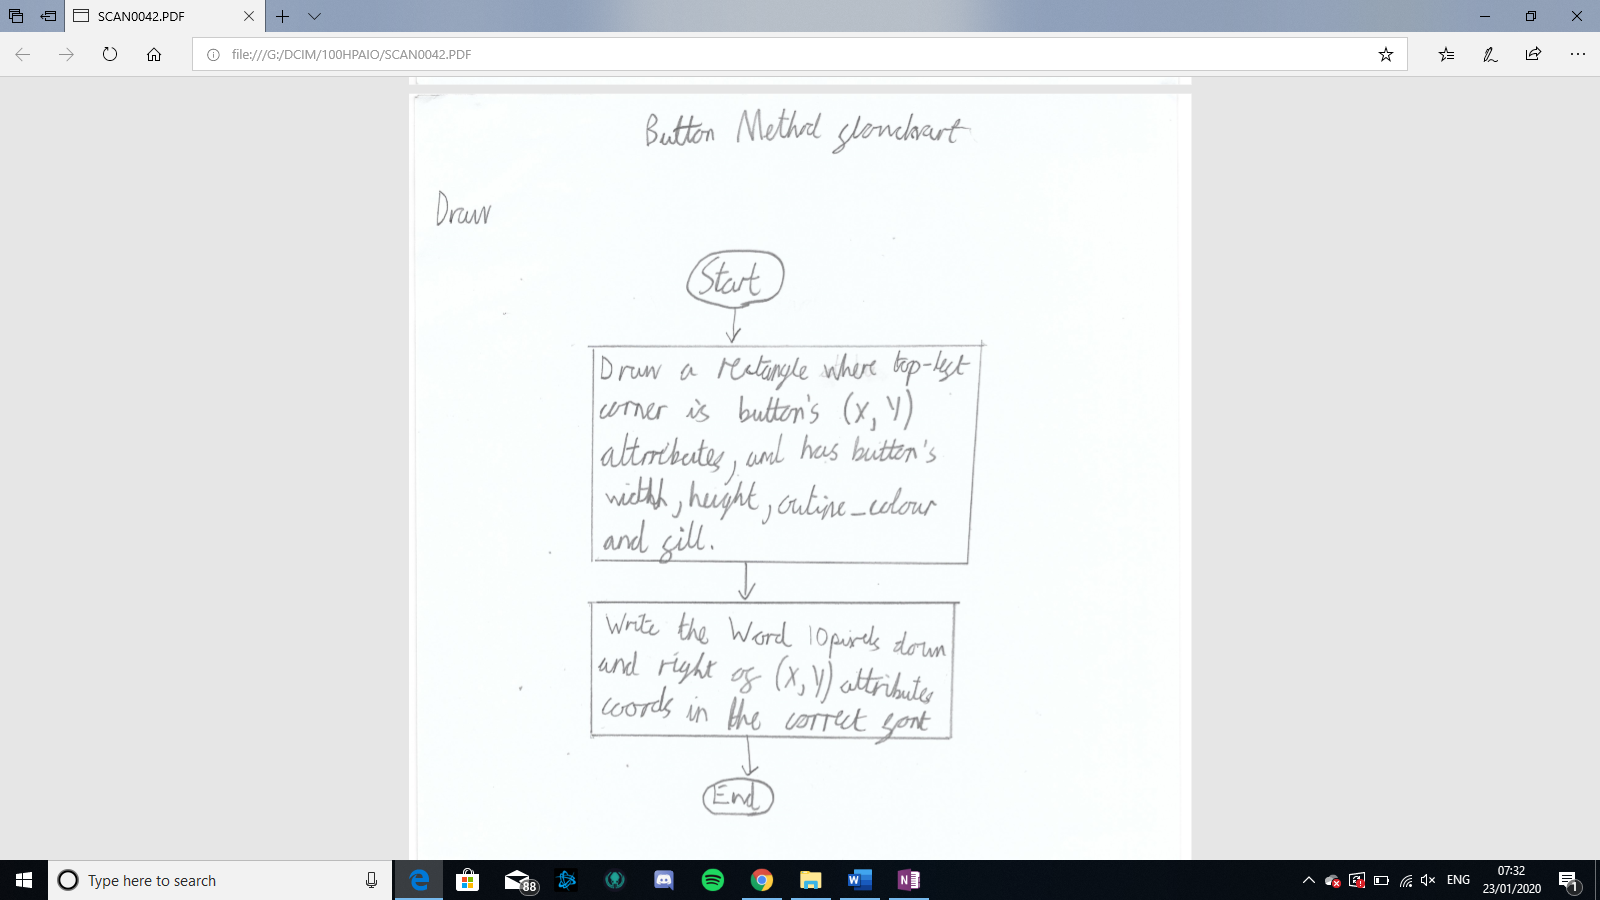 SCAN0042.PDF
file:///G:/DCIM/100HPAIO/SCAN0042.PDF
Button Method flowchart
Draw
Start
Draw a rectangle where top-left
corner is button's (X, Y)
attributes, and has button's
width, height, outline_colour
and fill.
Write the Word 10 pixels down
and right of (X, Y) attributes
coords in the correct font
End
Type here to search
88
ENG
07:32
23/01/2020
1